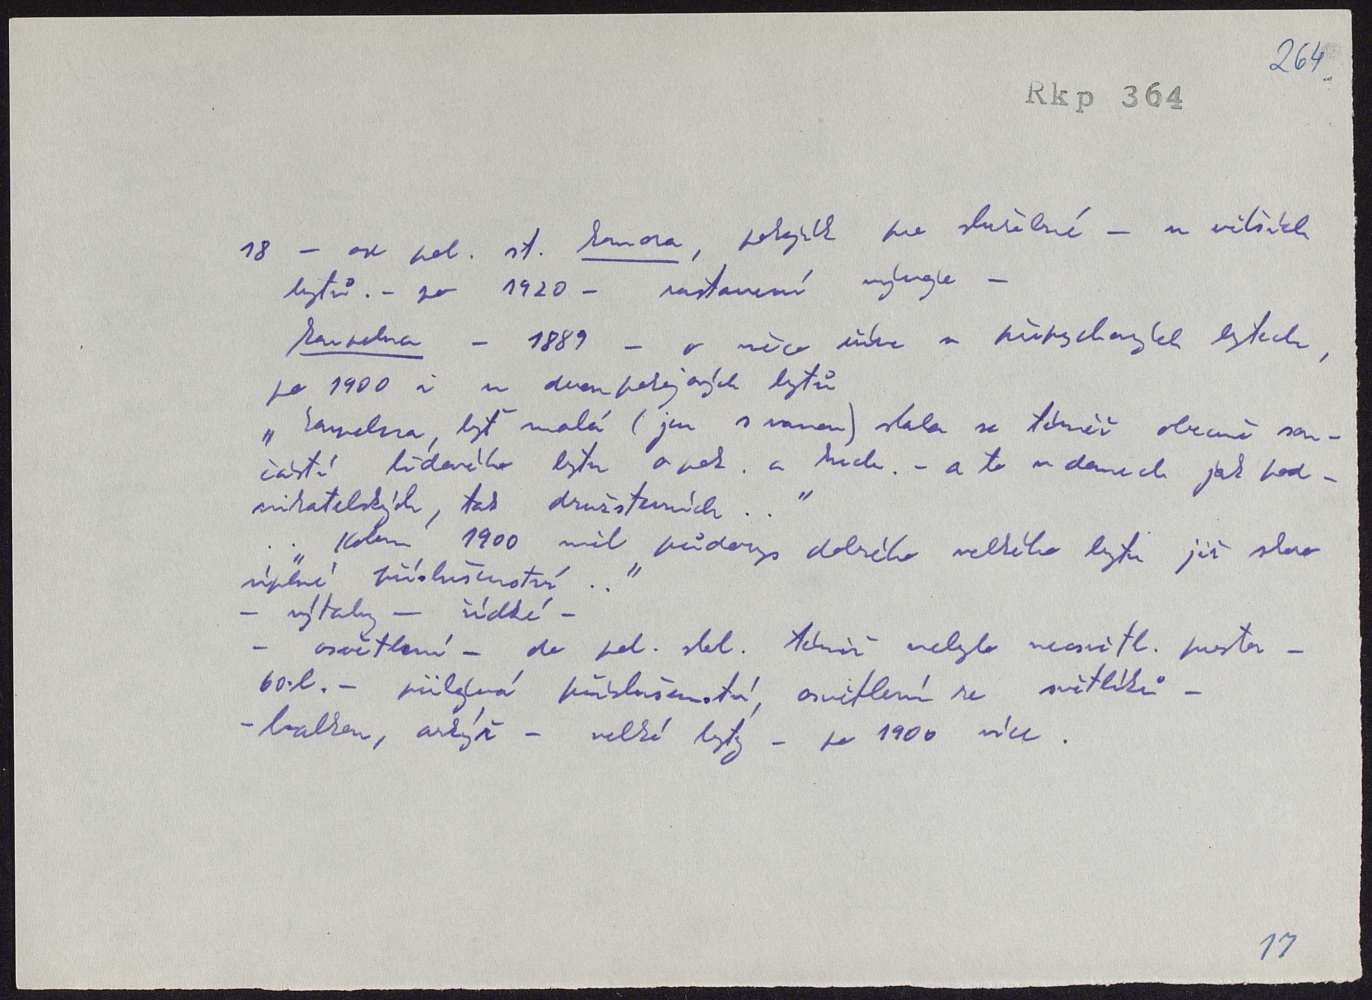 264
Rkp 364
18 – od pol. st. komora, pokojík pro služebné – u větších
bytů. – po 1920 – zastavení vývoje –
koupelna – 1889 – o něco víc v přepychových bytech,
po 1900 i u dvoupokojových bytů
„ koupelna, byť malá (jen s vanou) stala se téměř obecně sou-
částí lidového bytu o pok. a kuch. – a to v domech jak pod-
nikatelských, tak družstevních .. "
.. „ Kolem 1900 měl půdorys dobrého velkého bytu již skoro
úplné příslušenství .. "
– výtahy – řídké –
– osvětlení – do pol. stol. téměř nebylo neosvětl. prostor –
60. l. – přibývá příslušenství, osvětlení ze světlíků –
– balkon, arkýř – velké byty – po 1900 více .
17